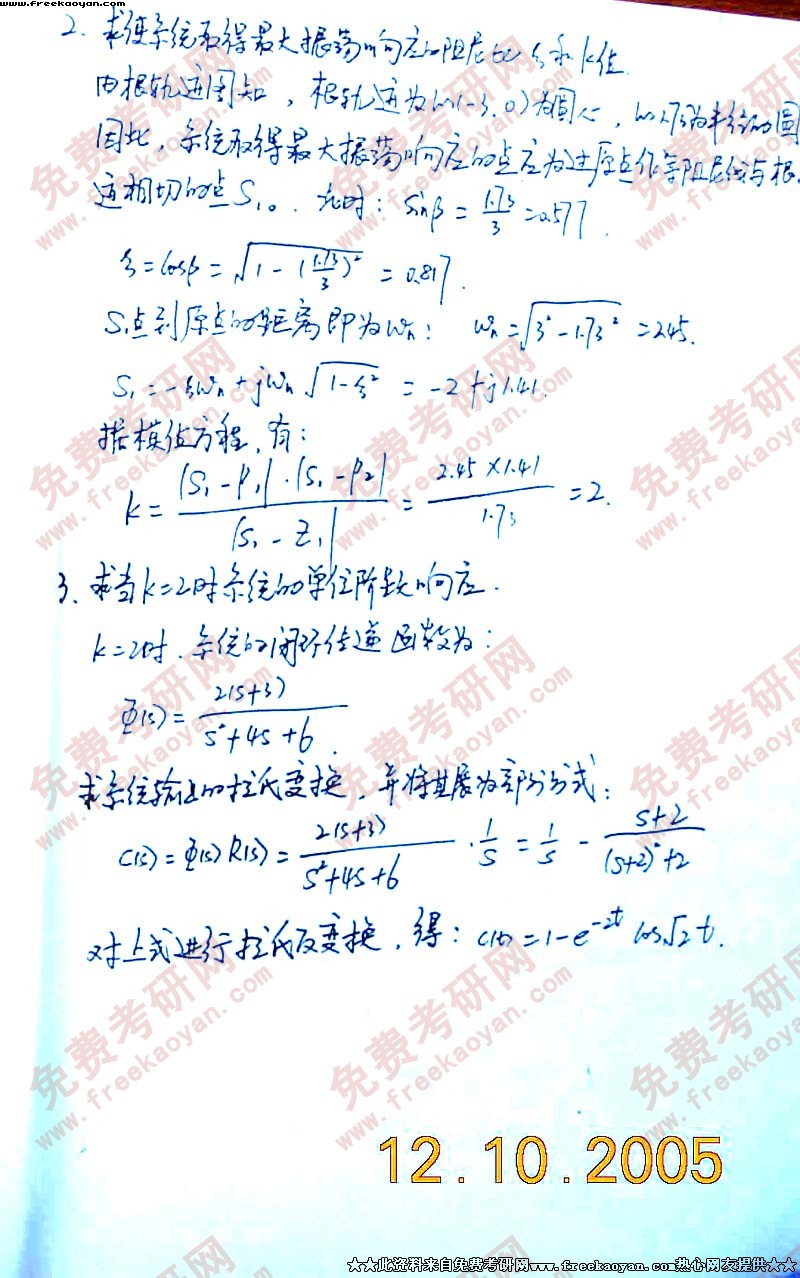 www.freekaoyan.com
2. 求使系统取得最大振荡响应的阻尼比ξ和k值.
由根轨迹图知，根轨迹为以(-3,0)为圆心，以√3为半径的圆
因此，系统取得最大振荡响应的点应为过原点作等阻尼线与根
迹相切的点S₁。此时：sinβ = 1.73/3 = 0.577
ξ = cosβ = √(1-(1.73/3)²) = 0.817.
S₁点到原点的距离即为ωn： ωn = √(3²-1.73²) = 2.45.
S₁ = -ξωn + jωn√(1-ξ²) = -2+j1.41.
据模值方程，有：
k = |S₁-P₁|·|S₁-P₂| / |S₁-Z₁| = 2.45×1.41 / 1.73 = 2.
3. 求当k=2时系统的单位阶跃响应.
k=2时.系统的闭环传递函数为：
Φ(s) = 2(s+3) / s²+4s+6.
求系统输出的拉氏变换，并将其展为部分分式：
C(s) = Φ(s)R(s) = 2(s+3) / s²+4s+6 · 1/s = 1/s - s+2 / (s+2)²+2
对上式进行拉氏反变换，得：c(t) = 1-e^{-2t} cos√2t.
12.10.2005
★★此资料来自免费考研网www.freekaoyan.com热心网友提供★★
免费考研网
www.freekaoyan.com